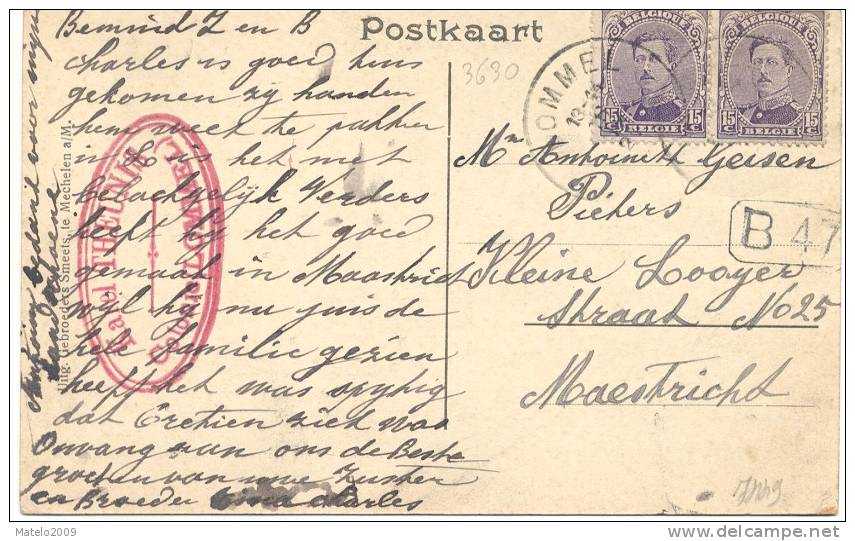 Postkaart
Beminde Z en B
Charles is goed thuis
gekomen zij hadden
hem weet te pakken
in L is het niet
belachelijk Verders
heeft hij het goed
gemaak in Maastricht
wijl hij nu juis de
hele familie gezien
heeft het was spijtig
dat Cretien ziek was
Ontvang van ons de Beste
groeten van uwe Zuster
en Broeder Charles
voor
Uitg. Gebroeders Smeets, te Mechelen a/M.
Karel THEUNIS
3630
OMME
13-14
BELGIQUE
15 C 15 C
BELGIE
BELGIQUE
15 C 15 C
BELGIE
Mr Antoinett Geisen
Piethers
Kleine Looyer
Straat No 25
Maestricht
B 47
Matelo2009
www.delcampe.net